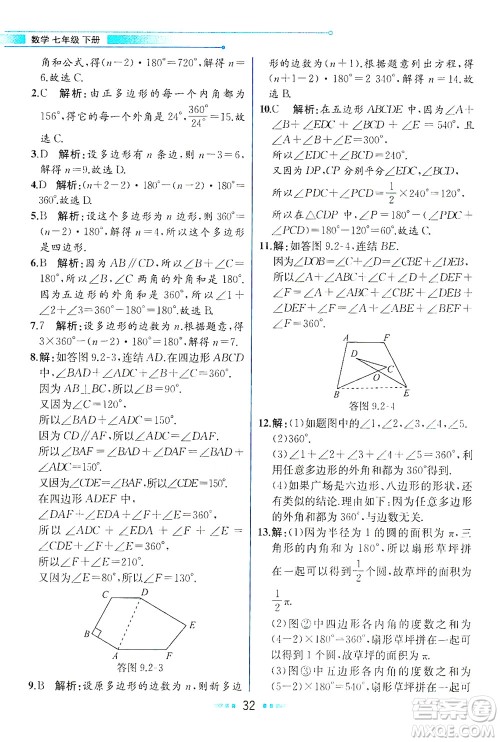 数学 七年级 下册
角和公式，得(n－2)·180°＝720°，解得 n＝6.故选 C.
2.C 解析：由正多边形的每一个内角都为
156°，得它的每一个外角 24°，360°/24°＝15.故选 C.
3.D 解析：设多边形有 n 条边，则 n－3＝6，
解得 n＝9.故选 D.
4.D 解析：(n＋2－2)·180°－(n－2)·180°＝
360°.故选 D.
5.B 解析：设这个多边形的边数为 n，根据题
意，得(n－2)·180°＝360°，解得 n＝4.故这个多边形
是四边形.
6.B 解析：因为 AB∥CD，所以∠B＋∠C＝
180°，所以∠B，∠C 两角的外角和为 180°.
因为五边形的外角和是 360°，所以∠1＋∠2
＋∠3＝360°－180°＝180°.故选 B.
7.7 解析：设多边形的边数为 n.根据题意，得
3×360°－(n－2)·180°＝180°，解得 n＝7.
8.解：如答图 9.2-3，连结 AD.在四边形 ABCD
中，∠BAD＋∠ADC＋∠B＋∠C＝360°.
因为 AB⊥BC，所以∠B＝90°.
又因为∠C＝120°，
所以∠BAD＋∠ADC＝150°.
因为 CD∥AF，所以∠ADC＝∠DAF.
所以∠BAD＋∠DAF＝150°.
又因为∠CDE＝∠BAF，
所以∠CDE＝150°.
在四边形 ADEF 中，
∠DAF＋∠EDA＋∠F＋∠E＝360°，
所以∠ADC＋∠EDA＋∠F＋∠E＝360°，
即∠CDE＋∠F＋∠E＝360°.
又因为∠E＝80°，
所以∠F＝360°－150°－80°＝130°.
B
C
D
E
A
F
答图 9.2-3
9.B 解析：设原多边形的边数为 n，则新多边
形的边数为 n＋1.根据题意列出方程，得
(n＋1－2)·180°＝2340°，解得 n＝14.故选 B.
10.C 解析：在五边形 ABCDE 中，∠A＋∠B
＋∠BCD＋∠CDE＋∠E＝540°.
因为∠A＋∠B＋∠E＝300°，
所以∠BCD＋∠CDE＝240°.
又因为 DP，CP 分别平分∠CDE，∠BCD，
所以∠PDC＋∠PCD＝1/2×240°＝120°，
所以在△CDP 中，∠P＝180°－(∠PDC＋
∠PCD)＝60°.故选 C.
11.解：如答图 9.2-4，连结 BE.
因为∠C＋∠D＋∠COD＝∠BEO＋∠OBE
＋∠BOE＝180°，∠COD＝∠BOE，
所以∠C＋∠D＝∠OBE＋∠BEO，
所以∠A＋∠B＋∠C＋∠D＋∠E＋∠F＝
∠A＋∠ABC＋∠OBE＋∠BEO＋∠DEF
＋∠F＝360°.
A
F
D
C
O
B
E
答图 9.2-4
12.解：(1)如题图中的∠1，∠2，∠3，∠4，∠5.
(2)360°.
(3)∠1＋∠2＋∠3＋∠4＋∠5＝360°.
(4)如果广场是六边形、八边形的形状，还
有类似的结论，理由是：因为任意多边形
的外角和都是 360°，与边数无关.
13.解：(1)因为半径为 1 的圆的面积是 π，三
角形的内角和为 180°，所以扇形草坪拼在
一起可以得到1/2个圆，故草坪的面积为
1/2π.
(2)图②中四边形各内角的度数之和为
(4－2)×180°＝360°，扇形草坪拼在一起可
以得到一个圆，故草坪的面积为 π.
(3)图③中五边形各内角的度数之和为
(5－2)×180°＝540°，扇形草坪拼在一起可
32